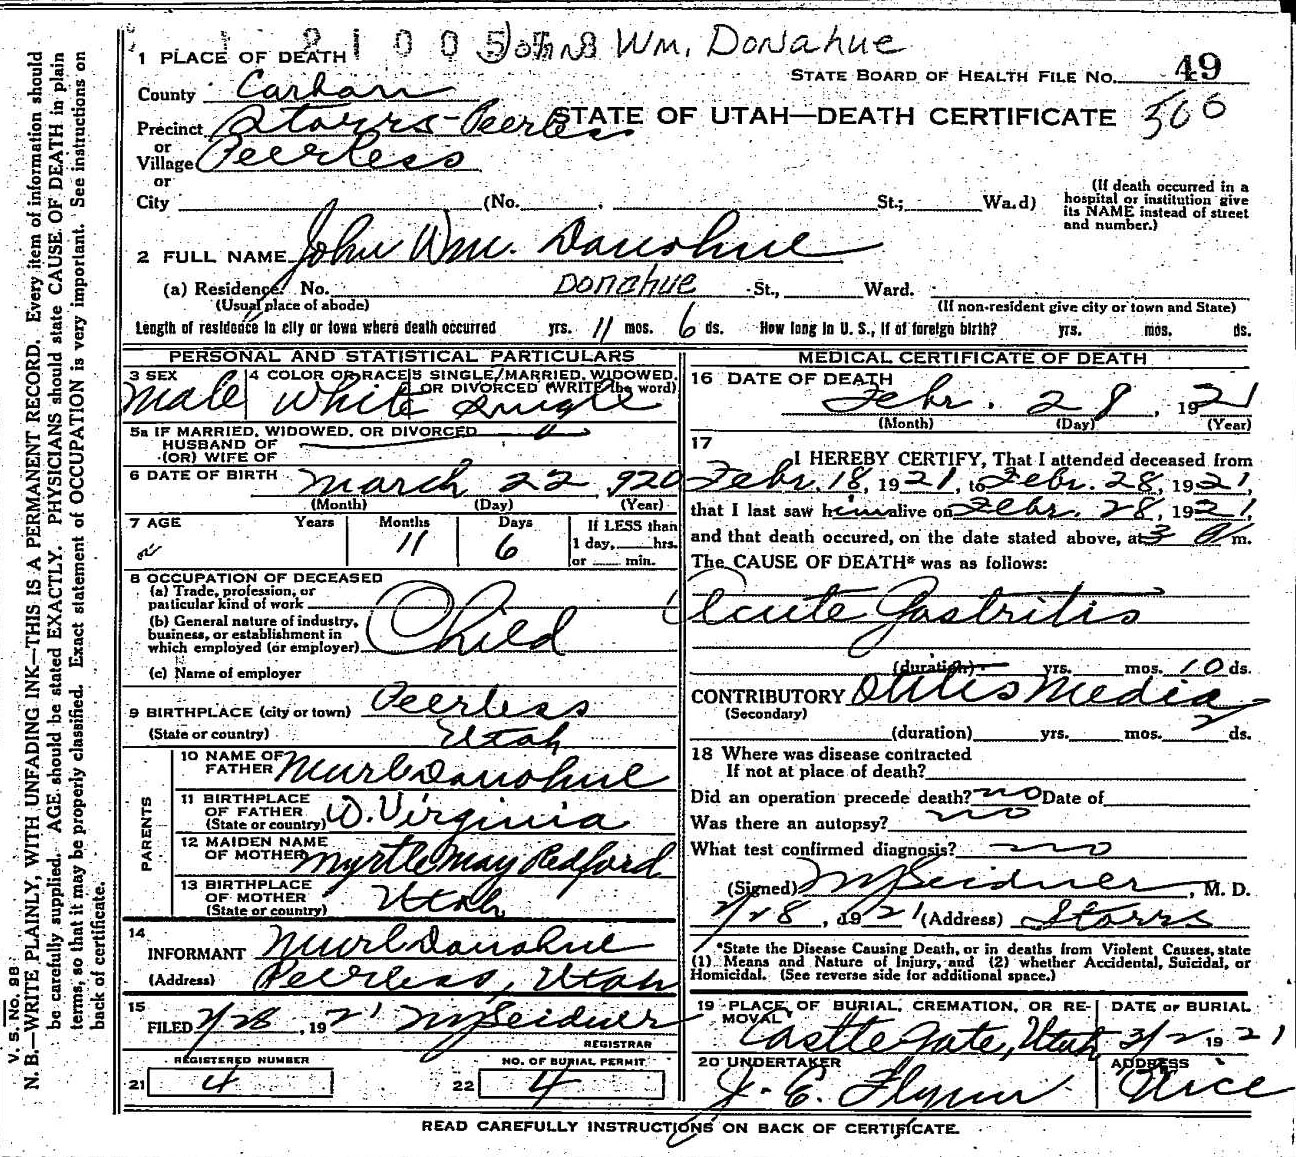 John Wm. Donahue
1 PLACE OF DEATH
STATE BOARD OF HEALTH FILE NO. 49
County Carbon
STATE OF UTAH—DEATH CERTIFICATE 500
Precinct Storrs-Peerless
or
Village Peerless
or
City (No. , St.; Ward)
(If death occurred in a hospital or institution give its NAME instead of street and number.)
2 FULL NAME John Wm. Donohue
(a) Residence. No. Donahue St., Ward.
(Usual place of abode) (If non-resident give city or town and State)
Length of residence in city or town where death occurred yrs. 11 mos. 6 ds. How long in U. S., if of foreign birth? yrs. mos. ds.
PERSONAL AND STATISTICAL PARTICULARS
3 SEX 4 COLOR OR RACE 5 SINGLE, MARRIED, WIDOWED,
OR DIVORCED (WRITE the word)
Male White Single
5a IF MARRIED, WIDOWED, OR DIVORCED
HUSBAND OF
(OR) WIFE OF
6 DATE OF BIRTH March 22, 920
(Month) (Day) (Year)
7 AGE Years Months Days If LESS than
1 day, hrs.
or min.
11 6
8 OCCUPATION OF DECEASED
(a) Trade, profession, or
particular kind of work
(b) General nature of industry,
business, or establishment in
which employed (or employer)
Child
(c) Name of employer
9 BIRTHPLACE (city or town) Peerless
(State or country) Utah
PARENTS
10 NAME OF
FATHER Murl Donohue
11 BIRTHPLACE
OF FATHER
(State or country) W. Virginia
12 MAIDEN NAME
OF MOTHER Myrtle May Redford
13 BIRTHPLACE
OF MOTHER
(State or country) Utah
14
INFORMANT Murl Donohue
(Address) Peerless, Utah
15
FILED 2/28, 1921 Seidner
REGISTRAR
REGISTERED NUMBER NO. OF BURIAL PERMIT
21 4 22 4
MEDICAL CERTIFICATE OF DEATH
16 DATE OF DEATH
Febr. 28, 1921
(Month) (Day) (Year)
17
I HEREBY CERTIFY, That I attended deceased from
Febr. 18, 1921, to Febr. 28, 1921,
that I last saw him alive on Febr. 28, 1921,
and that death occured, on the date stated above, at 3 a m.
The CAUSE OF DEATH* was as follows:
Acute Gastritis
(duration) yrs. mos. 10 ds.
CONTRIBUTORY Otitis Media
(Secondary)
(duration) yrs. mos. 2 ds.
18 Where was disease contracted
If not at place of death?
Did an operation precede death? no Date of
Was there an autopsy? no
What test confirmed diagnosis? no
(Signed) Seidner, M. D.
2/28, 1921 (Address) Storrs
*State the Disease Causing Death, or in deaths from Violent Causes, state
(1) Means and Nature of Injury, and (2) whether Accidental, Suicidal, or
Homicidal. (See reverse side for additional space.)
19 PLACE OF BURIAL, CREMATION, OR RE-
MOVAL DATE OF BURIAL
Castle Gate, Utah 3/2 1921
20 UNDERTAKER ADDRESS
J. E. Flynn Price
READ CAREFULLY INSTRUCTIONS ON BACK OF CERTIFICATE.
V. S. No. 98
N. B.—WRITE PLAINLY, WITH UNFADING INK—THIS IS A PERMANENT RECORD. Every item of information should
be carefully supplied. AGE should be stated EXACTLY. PHYSICIANS should state CAUSE OF DEATH in plain
terms, so that it may be properly classified. Exact statement of OCCUPATION is very important. See instructions on
back of certificate.